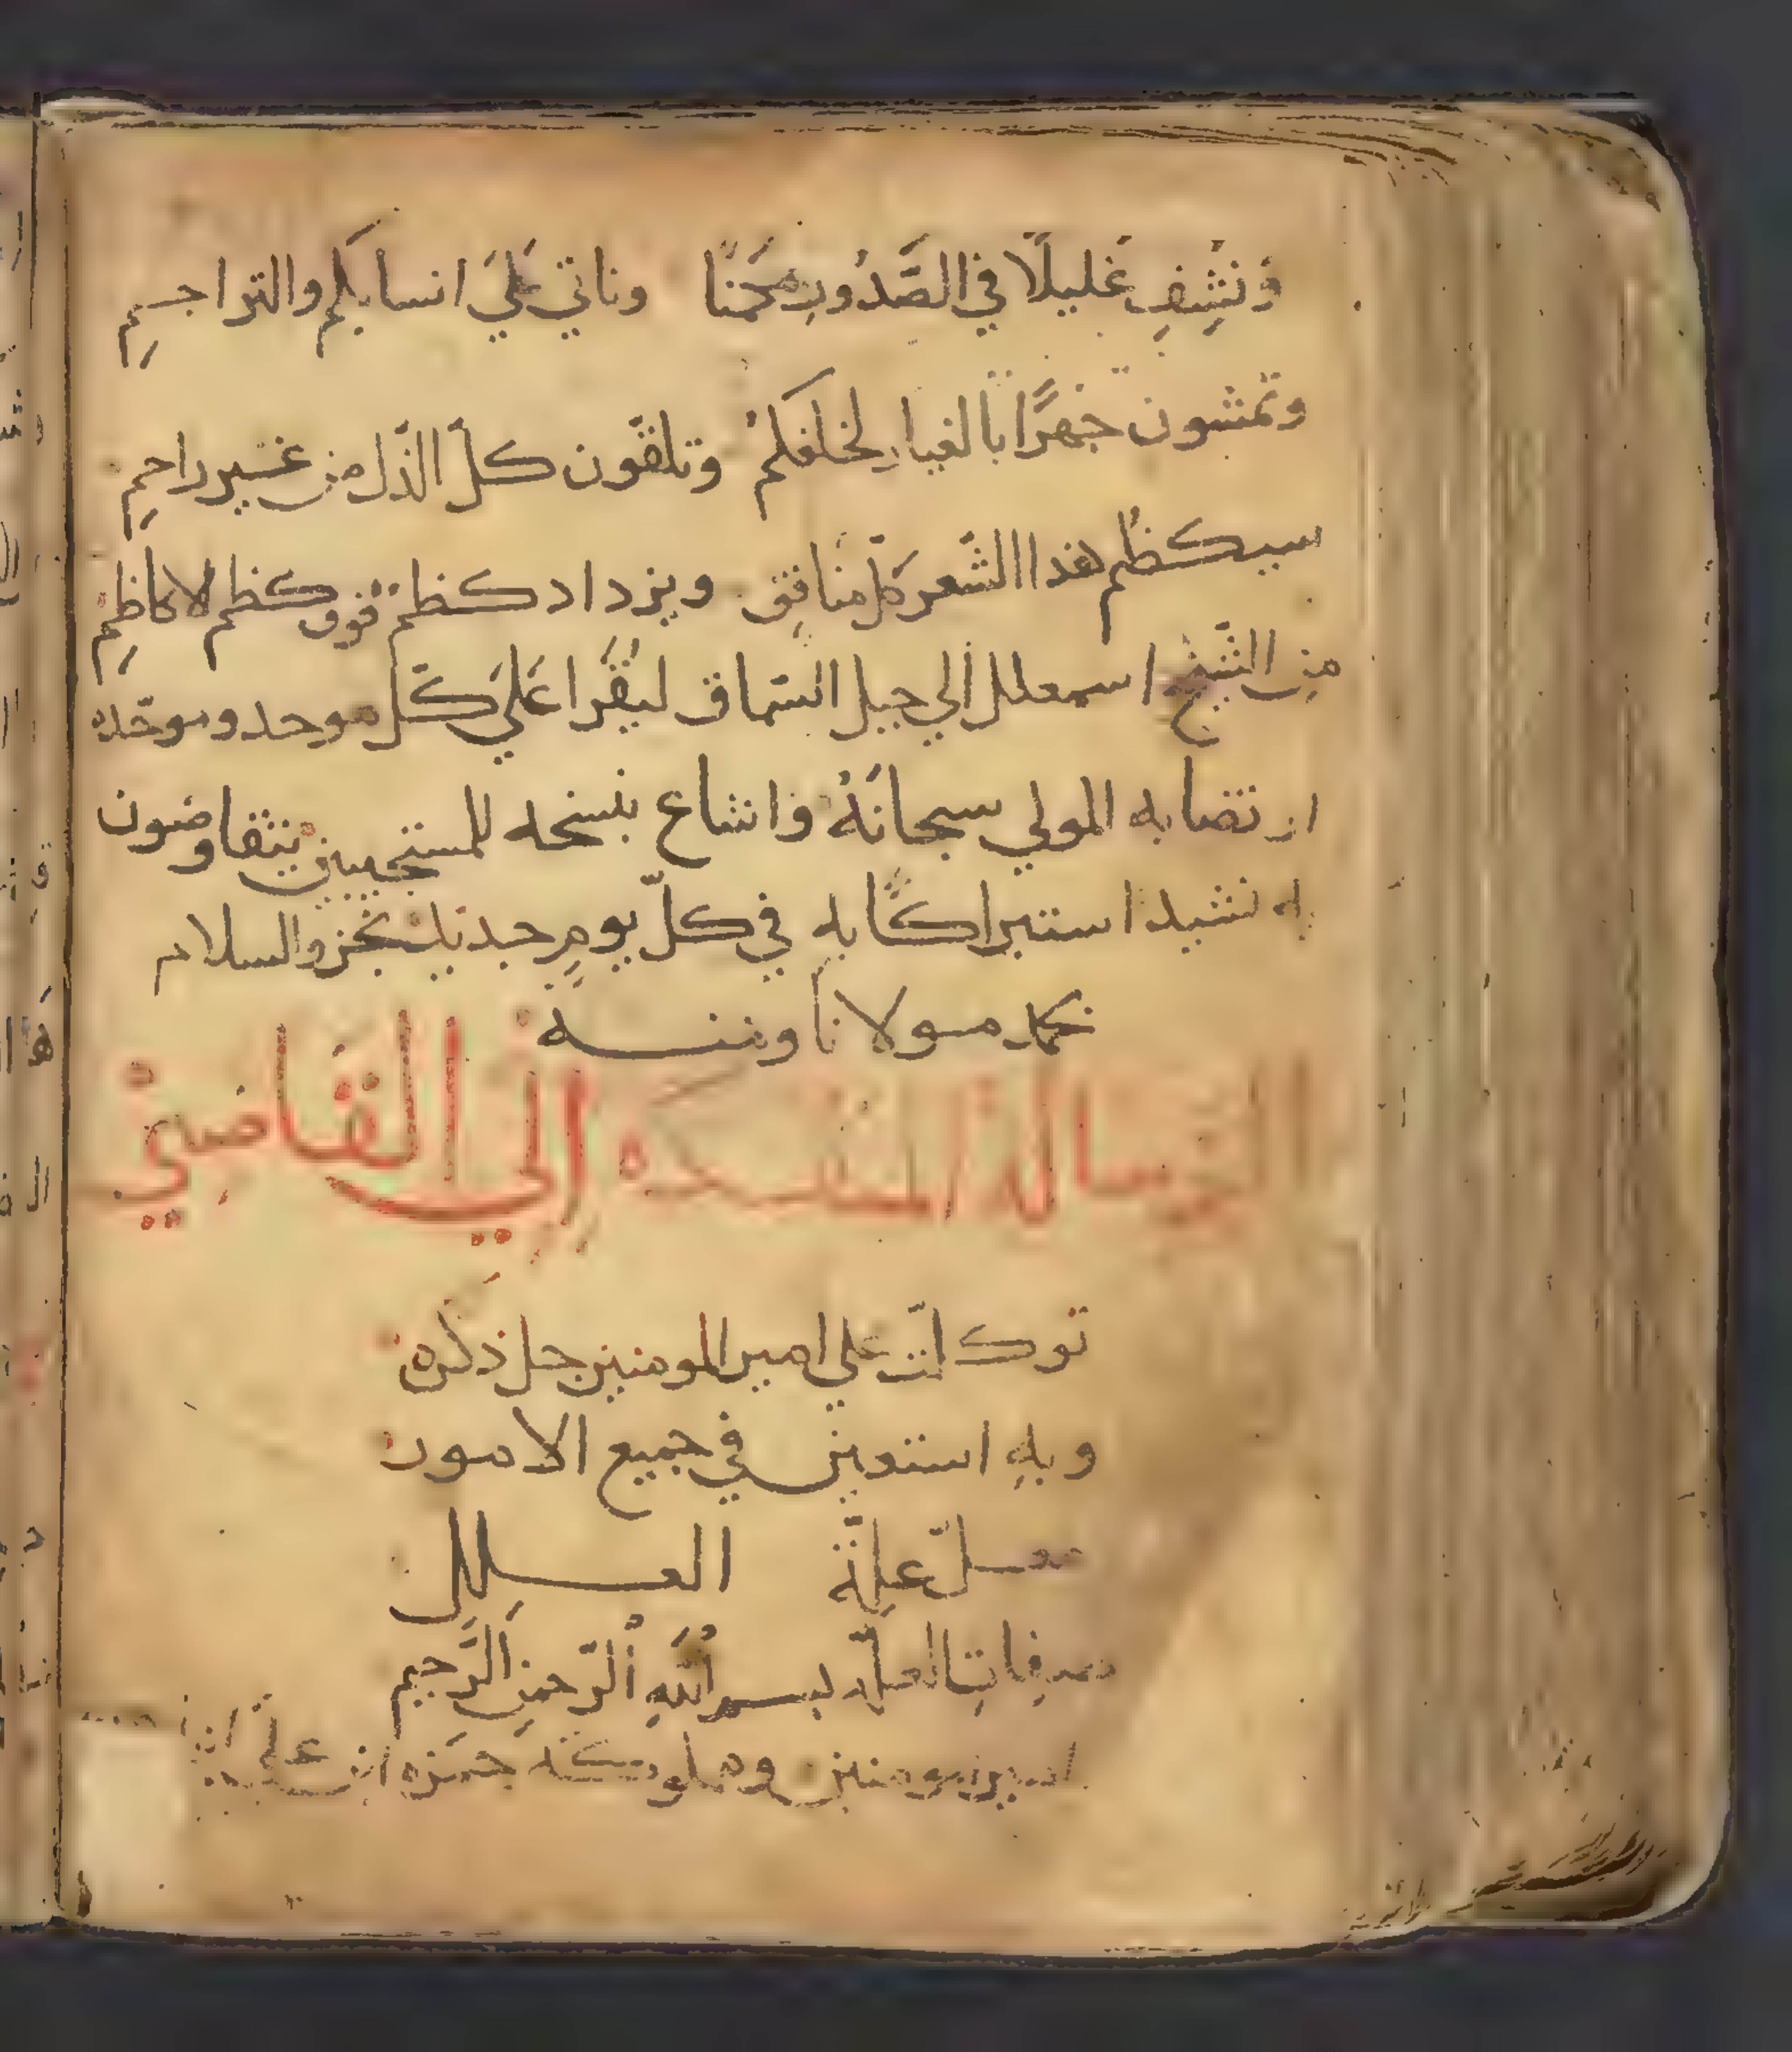 ونشفِ غليلًا في الصَّدُورِ مَحَنًا وناتي عَليَ انسابكم والتراجمِ
وتمشون جَهرًا بالغيارِ لخلفكمُ وتلقّون كلّ الذّل من غير راحمِ
سيكظُم هذا الشّعر كلّ منافقٍ ويزداد كظمًا فوق كظم لا كاظِمِ
من الشّيخ اسمعيل الي جبل السّماق ليُقَرا عَليَ كّل موحد وموحّده
ارتضا به المولي سبحانَهُ واشاع بنسخه للمستجيبين يتفاوضون
به نشيد استبراكًا به في كلّ يومٍ جديد نجز والسلام
بحمد مولانا ومنه
الرسالة المنفذه إلي القاضي
توكلت علي امير المومنين جل ذكره
وبهِ استعين في جميع الامور
معلّ علّة العلل
صفات العلّه بسم اللهِ الرّحمنِ الرَّحيم
امير المومنين ومملوكه حمَزه ابن علي